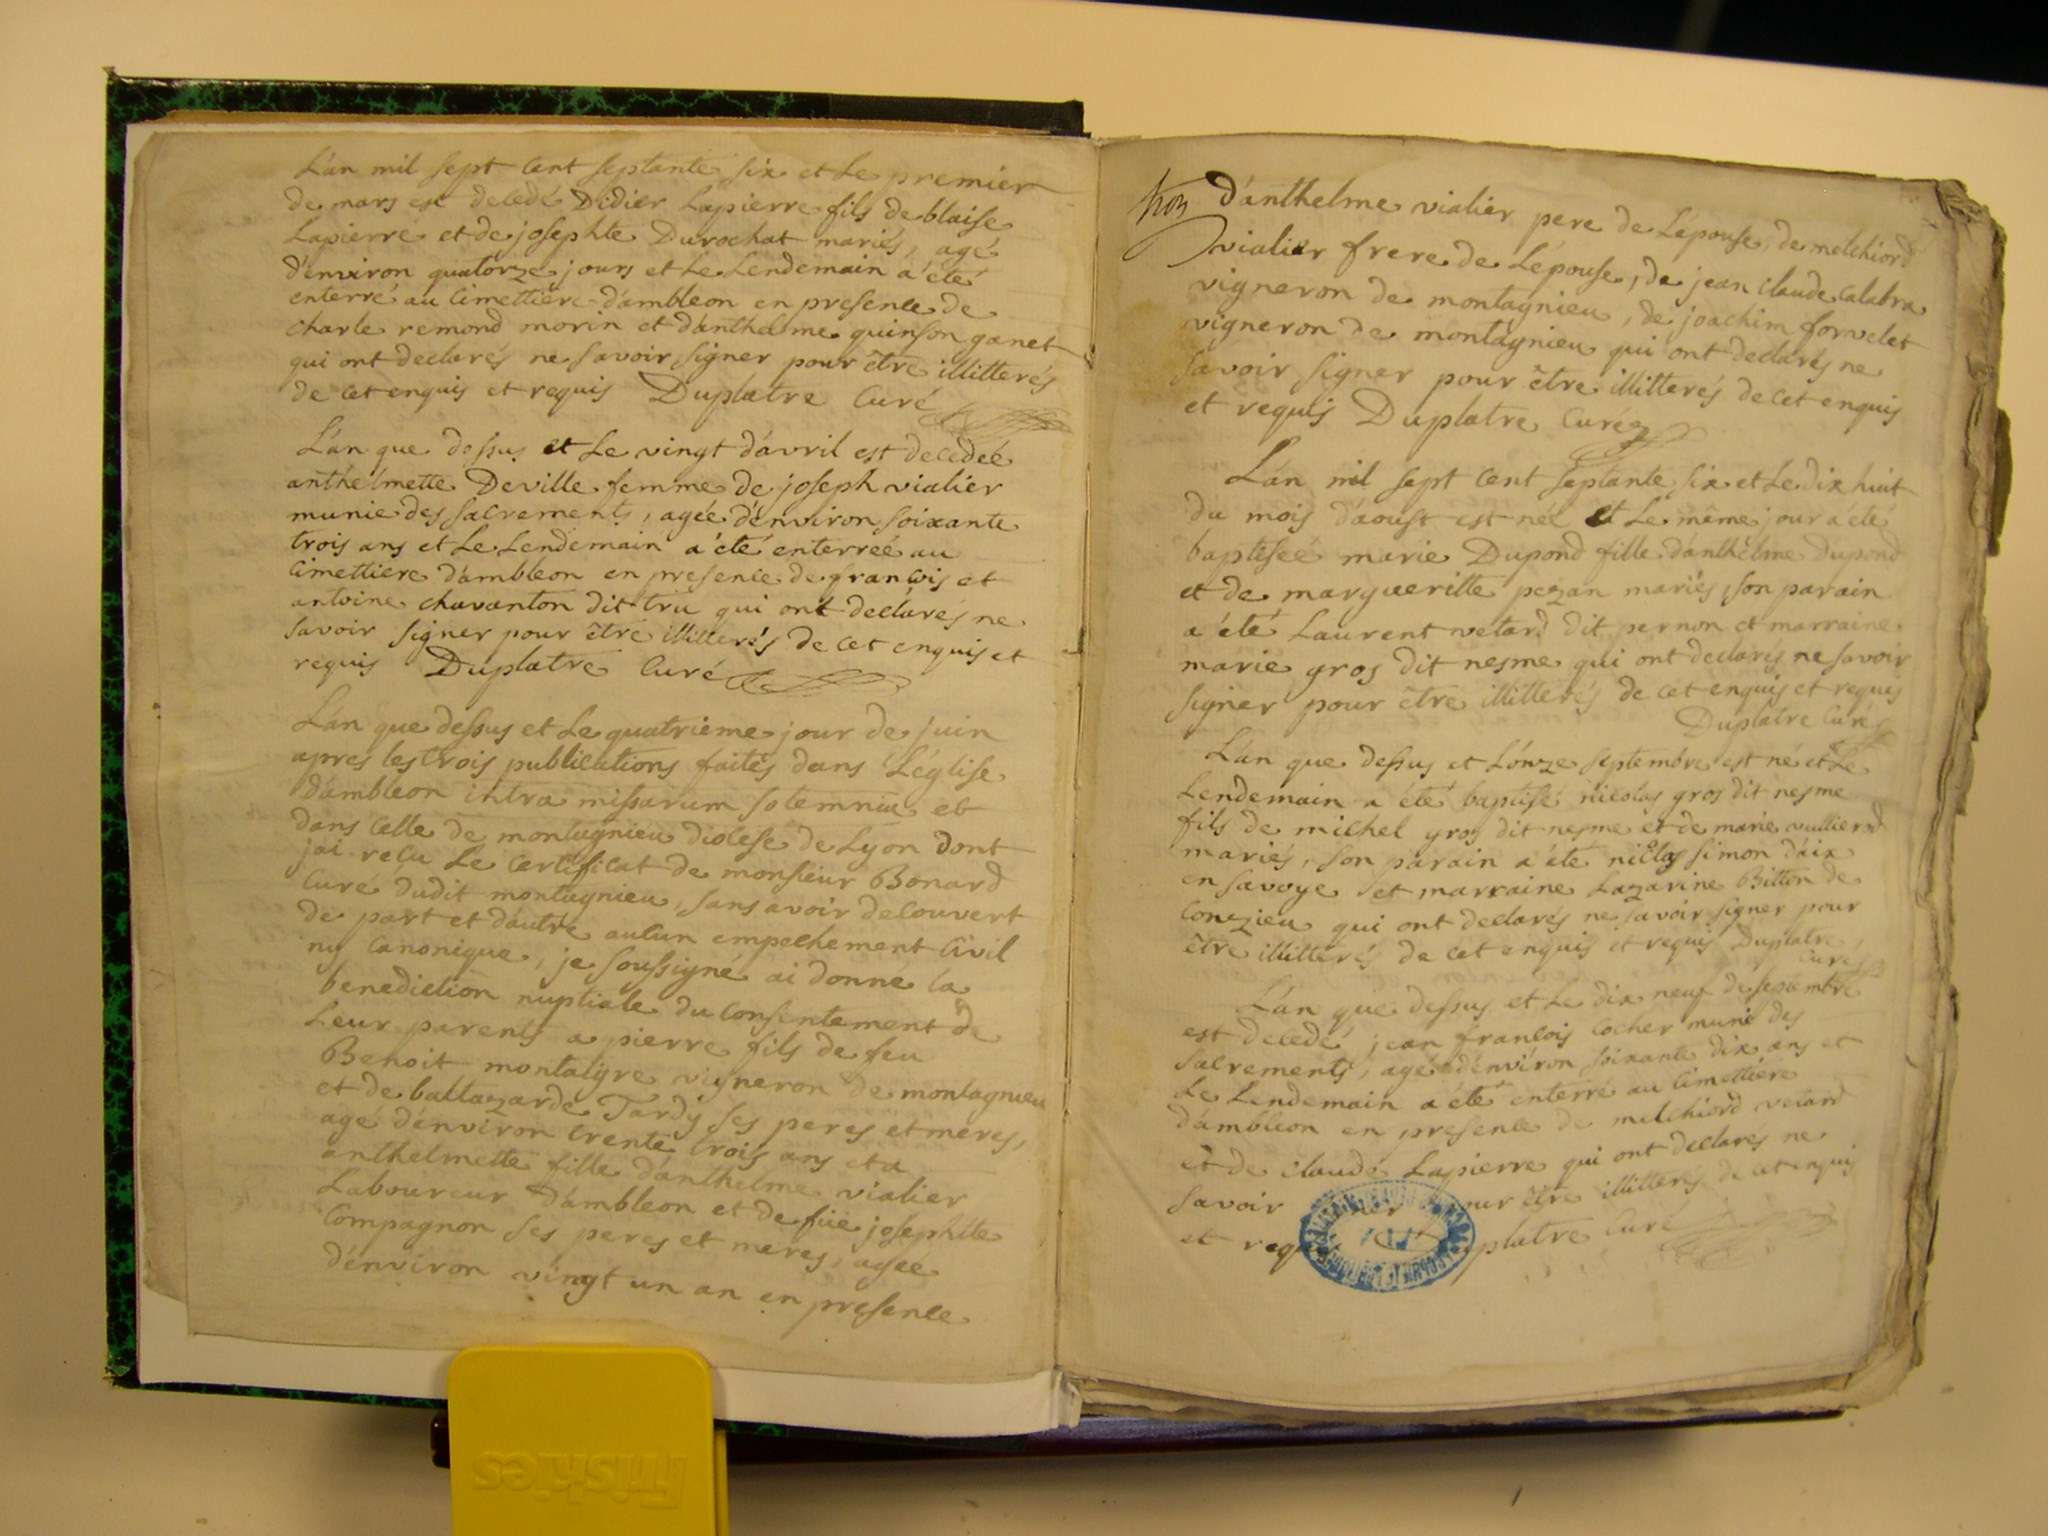 L'an mil sept cent septante six et le premier
de mars est decedé Didier Lapierre fils de blaise
Lapierre et de josephte Durochat mariés, agé
d'environ quatorze jours et le lendemain a été
enterré au cimettiere d'ambleon en presence de
charle remond morin et d'anthelme quinson ganet
qui ont declarés ne savoir signer pour être illitterés
de cet enquis et requis Duplatre Curé
L'an que dessus et le vingt d'avril est decedeé
anthelmette Deville femme de joseph vialier
munie des sacrements, agée d'environ soixante
trois ans et le lendemain a été enterreé au
cimettiere d'ambleon en presence de francois et
antoine chavanton dit tru qui ont declarés ne
savoir signer pour être illitterés de cet enquis et
requis Duplatre Curé
L'an que dessus et le quatrieme jour de juin
apres les trois publications faites dans L'église
d'ambleon intra missarum solemnia et
dans celle de montagnieu diocese de Lyon dont
jai recu le certificat de monsieur Bonard
Curé dudit montagnieu, sans avoir decouvert
de part et d'autre aucun empechement civil
ny canonique, je soussigné ai donné la
benediction nuptiale du consentement de
Leur parents a pierre fils de feu
Benoit montaigre vigneron de montagnieu
et de baltazarde Tardy ses peres et meres,
agé d'environ trente trois ans et a
anthelmette fille d'anthelme vialier
Laboureur d'ambleon et de füe josephte
Compagnon ses peres et meres, agée
d'environ vingt un an en presence
d'anthelme vialier pere de L'epouse, de melchiord
vialier frere de L'épouse, de jean claude calabra
vigneron de montagnieu, de joachim forvelet
vigneron de montagnieu qui ont declarés ne
savoir signer pour être illitterés de cet enquis
et requis Duplatre Curé
L'an mil sept cent septante six et le dix huit
du mois d'aoust est neé et le même jour a été
baptiseé marie Dupond fille d'anthelme Dupond
et de margueritte pezan mariés, son parain
a été Laurent vetard dit pernon et marraine
marie gros dit nesme qui ont declarés ne savoir
signer pour être illitterés de cet enquis et requis
Duplatre Curé
L'an que dessus et L'onze septembre est né et le
Lendemain a été baptisé nicolas gros dit nesme
fils de michel gros dit nesme et de marie vullierod
mariés, son parain a été niclas simon d'aix
en savoye et marraine Lazarine Bitton de
Conzieu qui ont declarés ne savoir signer pour
être illitterés de cet enquis et requis Duplatre
Curé
L'an que dessus et le dix neuf de septembre
est decedé jean francois cocher muni des
sacrements, agé d'environ soixante dix ans et
le Lendemain a été enterré au cimettiere
d'ambleon en presence de melchiord vetard
et de claude Lapierre qui ont declarés ne
savoir être illitterés de cet enquis
et Curé
friskies